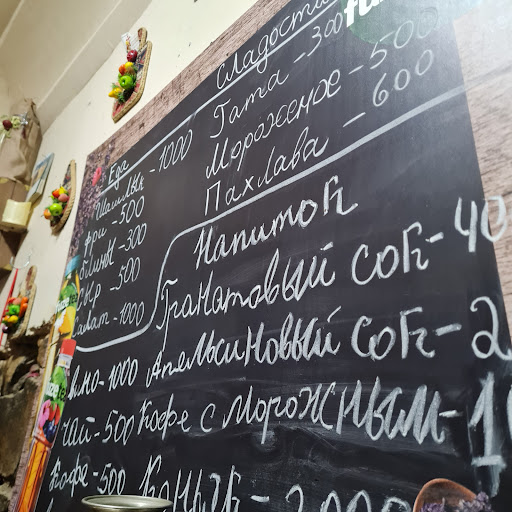 Еда
Шашлык - 1000
фри - 500
блины - 300
Сыр - 500
Салат - 1000
Сладости
Гата - 300
Мороженое - 500
Пахлава - 600
Напиток
Гранатовый сок - 40
вино - 1000 Апельсиновый сок - 2
Чай - 500 Кофе с Морожным - 1
Кофе - 500 Каньяк - 2000